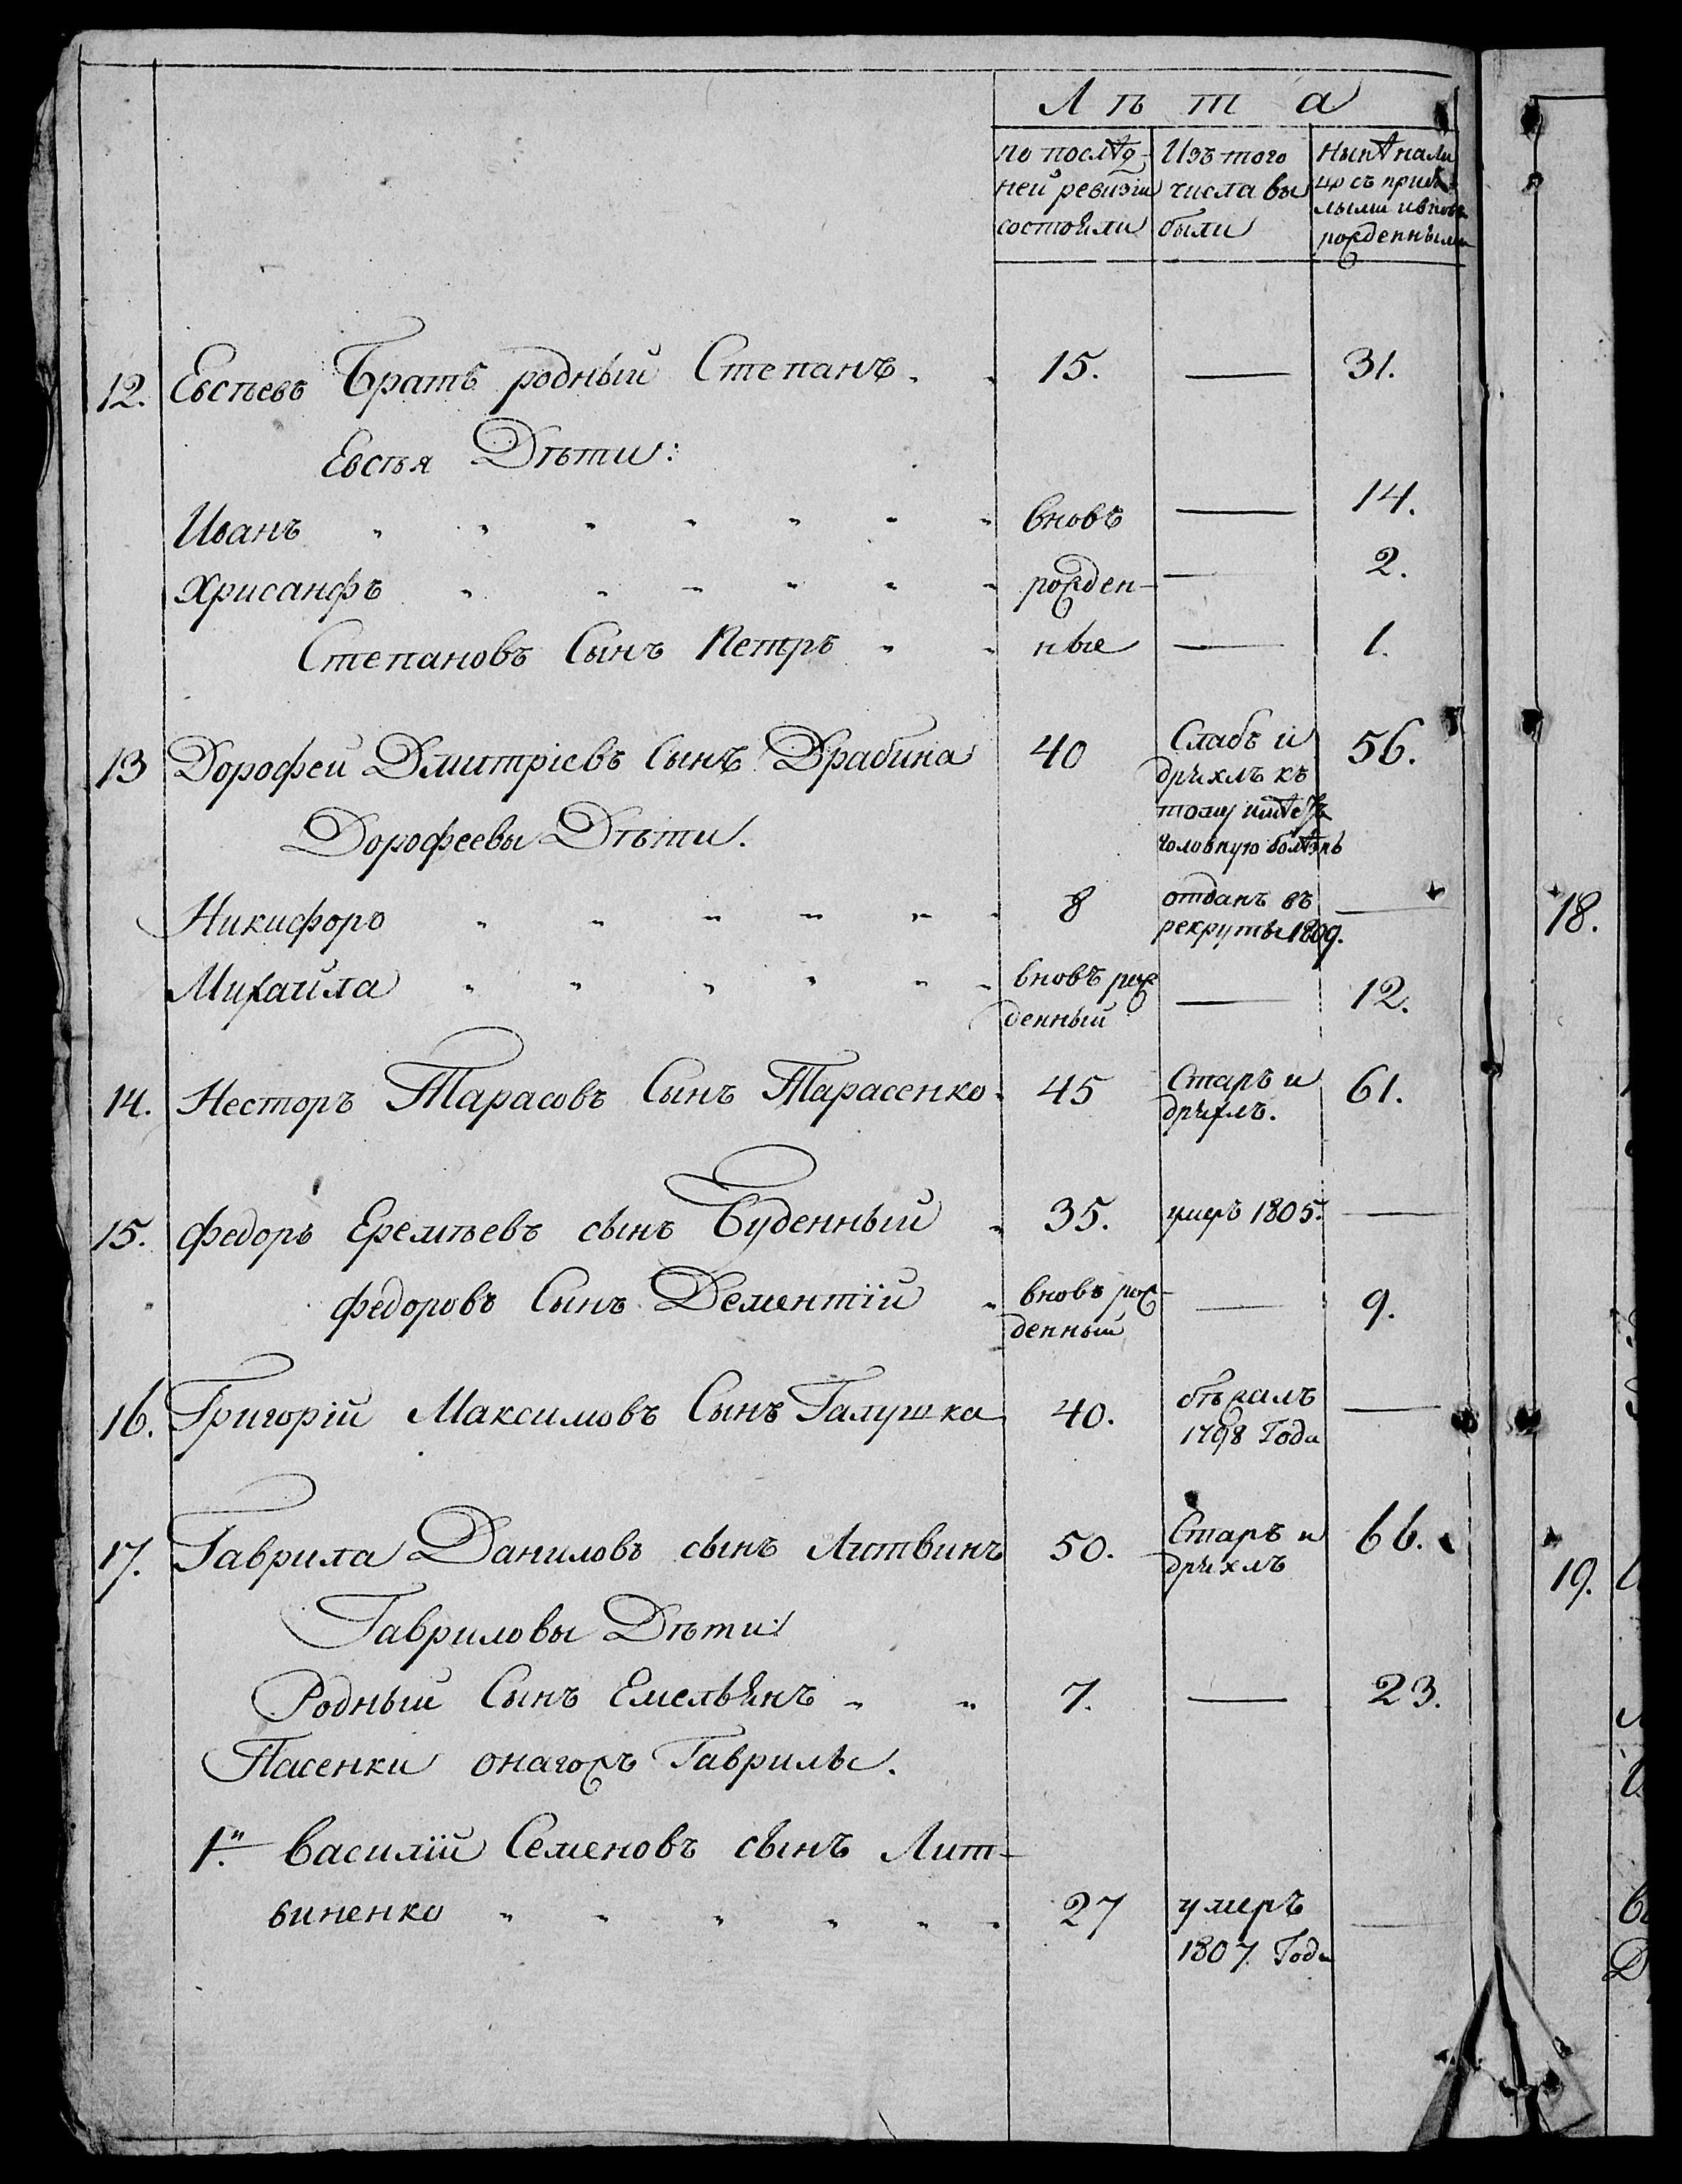 Лѣта
по послѣд- Изъ того Нынѣ нали
ней ревизіи числа вы цо съ прибы-
состояли были лыми и вновь
рожденными
12. Евсѣевъ Братъ родный Степанъ 15. — 31.
Евсѣя Дѣти:
Иванъ вновъ — 14.
Хрисанфъ рожден- — 2.
Степановъ Сынъ Петръ ные — 1.
13 Дорофей Дмитріевъ Сынъ Драбина 40 Слабъ и 56.
дряхлъ къ
тому имѣетъ
головную болѣзнь
Дорофеевы Дѣти.
Никифоръ 8 отданъ въ —
рекруты 1809.
Михайла вновъ рож — 12.
денный
14. Несторъ Тарасовъ Сынъ Тарасенко 45 Старъ и 61.
дряхлъ.
15. Федоръ Еремѣевъ сынъ Буденный 35. умеръ 1805. —
Федоровъ Сынъ Дементій вновъ рож- — 9.
денный
16. Григорій Максимовъ Сынъ Галушка 40. бѣжалъ —
1798 Года
17. Гаврила Даниловъ сынъ Литвинъ 50. Старъ и 66.
дряхлъ
Гавриловы Дѣти:
Родный Сынъ Емельянъ 7. — 23.
Пасенки онагожъ Гаврилы.
1.й Василій Семеновъ сынъ Лит-
виненко 27 умеръ —
1807 Года
18.
19.